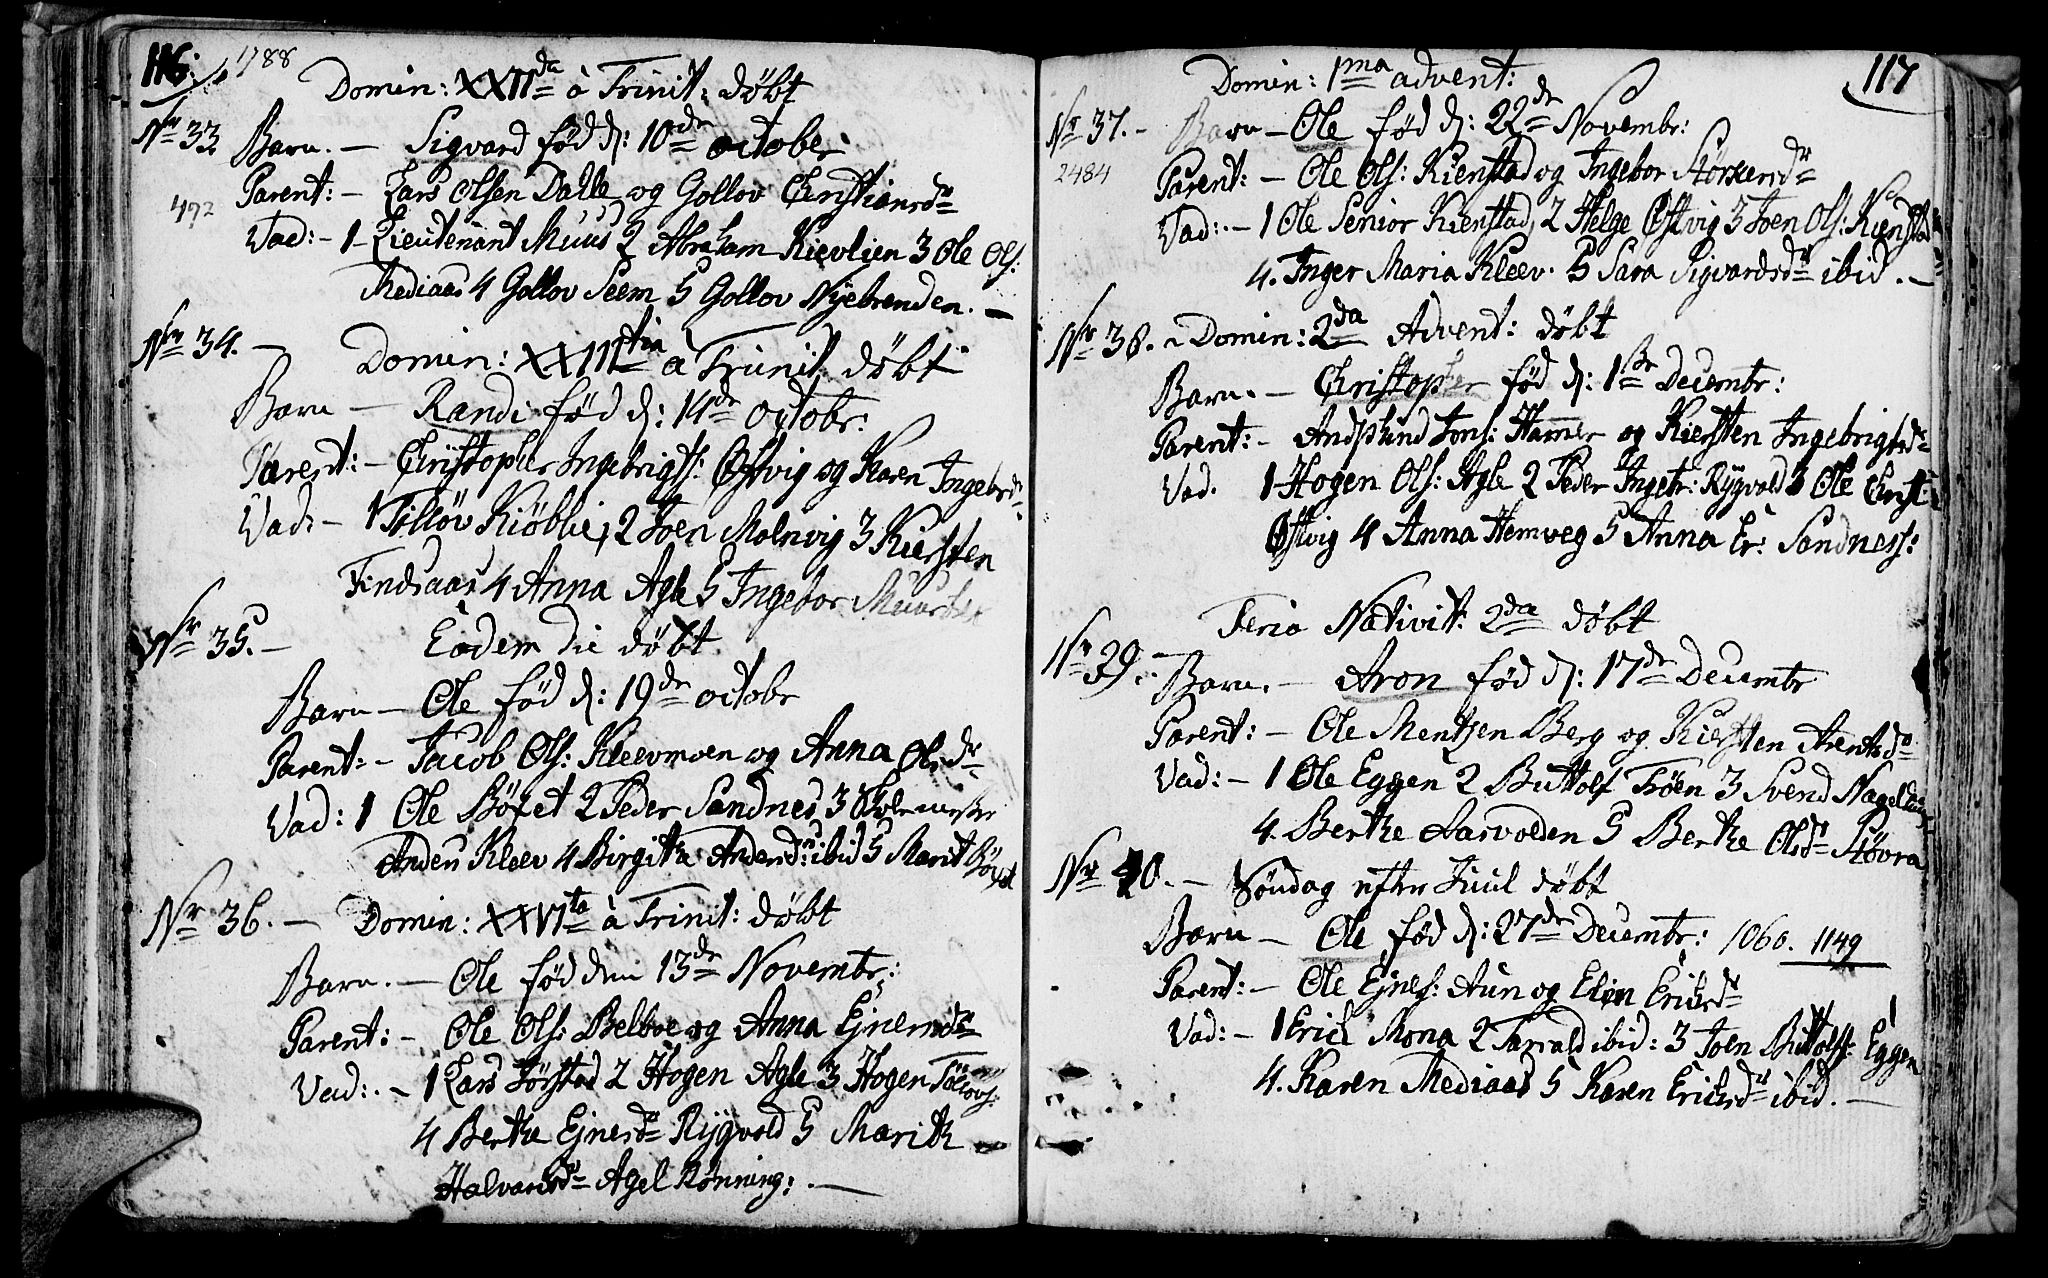 116: 1788
Domin: XXII da à Trinit: døbt
Nr 33. Barn. – Sigvard fød d: 10de october
Parent: – Lars Olsen Dalle og Gollov Christiansdr
492
Vad: – 1 Lieutenant Muus 2 Abraham Kievlien 3 Ole Ols:
Mediaas 4 Gollov Seem 5 Gollov Nyebrenden. –
Nr 34. – Domin: XXIII tia à Trinit. døbt
Barn – Randi fød d: 14de octobr:
Parent: – Christopher Ingebrigts: Østvig og Karen Ingebrdr
Vad: – 1 Tilløv Kiøblie, 2 Joen Molnvig 3 Kiersten
Findsaas 4 Anna Agle 5 Ingebor
Nr 35. – Eodem die døbt
Barn – Ole fød d: 19de octobr
Parent: – Jacob Ols: Kleevmoen og Anna Olsdr
Vad: 1 Ole Bøfet 2 Peder Sandnes 3 Skolemester
Anders Kleev 4 Birgitha Andersdr ibid 5 Marit
Nr 36. – Domin: XXVI ta à Trinit: døbt
Barn. – Ole fød den 13de Novembr:
Parent: – Ole Ols: Belboe og Anna Ejnersdr
Vad: – 1 Lars Jørstad 2 Hogen Agle 3 Hogen Tølløvs:
4 Berthe Ejnersdr Rygvold 5 Marith
Halvardsdr Agel Rønning: –
117
Domin: 1ma advent:
Nr 37. – Barn – Ole fød d: 22de Novembr:
2484
Parent: – Ole Ols: Kienstad og Ingebor Størkersdr
Vad: – 1 Ole Senior Kienstad, 2 Helge Østvig 3 Joen Ols: Kienstad
4. Inger Maria Kleev. 5 Sara Sigvardsdr ibid. –
Nr 38. – Domin: 2da Advent: døbt
Barn. – Christopher fød d: 1ste Decembr:
Parent: – Jons: Hammer og Kiersten Ingebrigtsdr
Vad. 1 Hogen Ols: Agle 2 Peder Ingebr: Rygvold 3 Ole Christ:
Østvig 4 Anna Hemveg 5 Anna Er: Sandness:
Feria Nativit: 2da døbt
Nr 39. – Barn. – Aron fød d: 17de Decembr
Parent: – Ole Mentzen Berg og Kiersten Arentsdr
Vad: – 1 Ole Eggen 2 Buttolf Troen 3 Svend
4. Berthe Aasvolden 5 Berthe Olsdr Støvra
Nr 40. – Søndag efter Juul døbt
Barn – Ole fød d: 27de Decembr: 1060. 1149
Parent: – Ole Ejnes: Aun og Elen Ericsdr
Vad: – 1 Eric Mona 2 Tarrald ibid: 3 Joen Buttolfs: Eggen
4. Karen Mediaas 5 Karen Ericsdr ibid. –